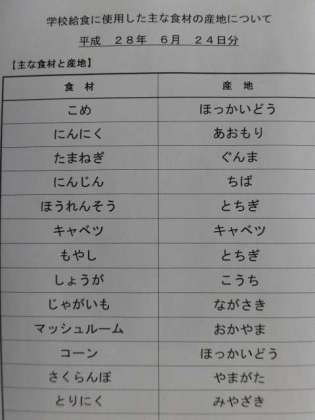 学校給食に使用した主な食材の産地について
平成 28年 6月 24日分
【主な食材と産地】
食 材 産 地
こめ ほっかいどう
にんにく あおもり
たまねぎ ぐんま
にんじん ちば
ほうれんそう とちぎ
キャベツ キャベツ
もやし とちぎ
しょうが こうち
じゃがいも ながさき
マッシュルーム おかやま
コーン ほっかいどう
さくらんぼ やまがた
とりにく みやざき